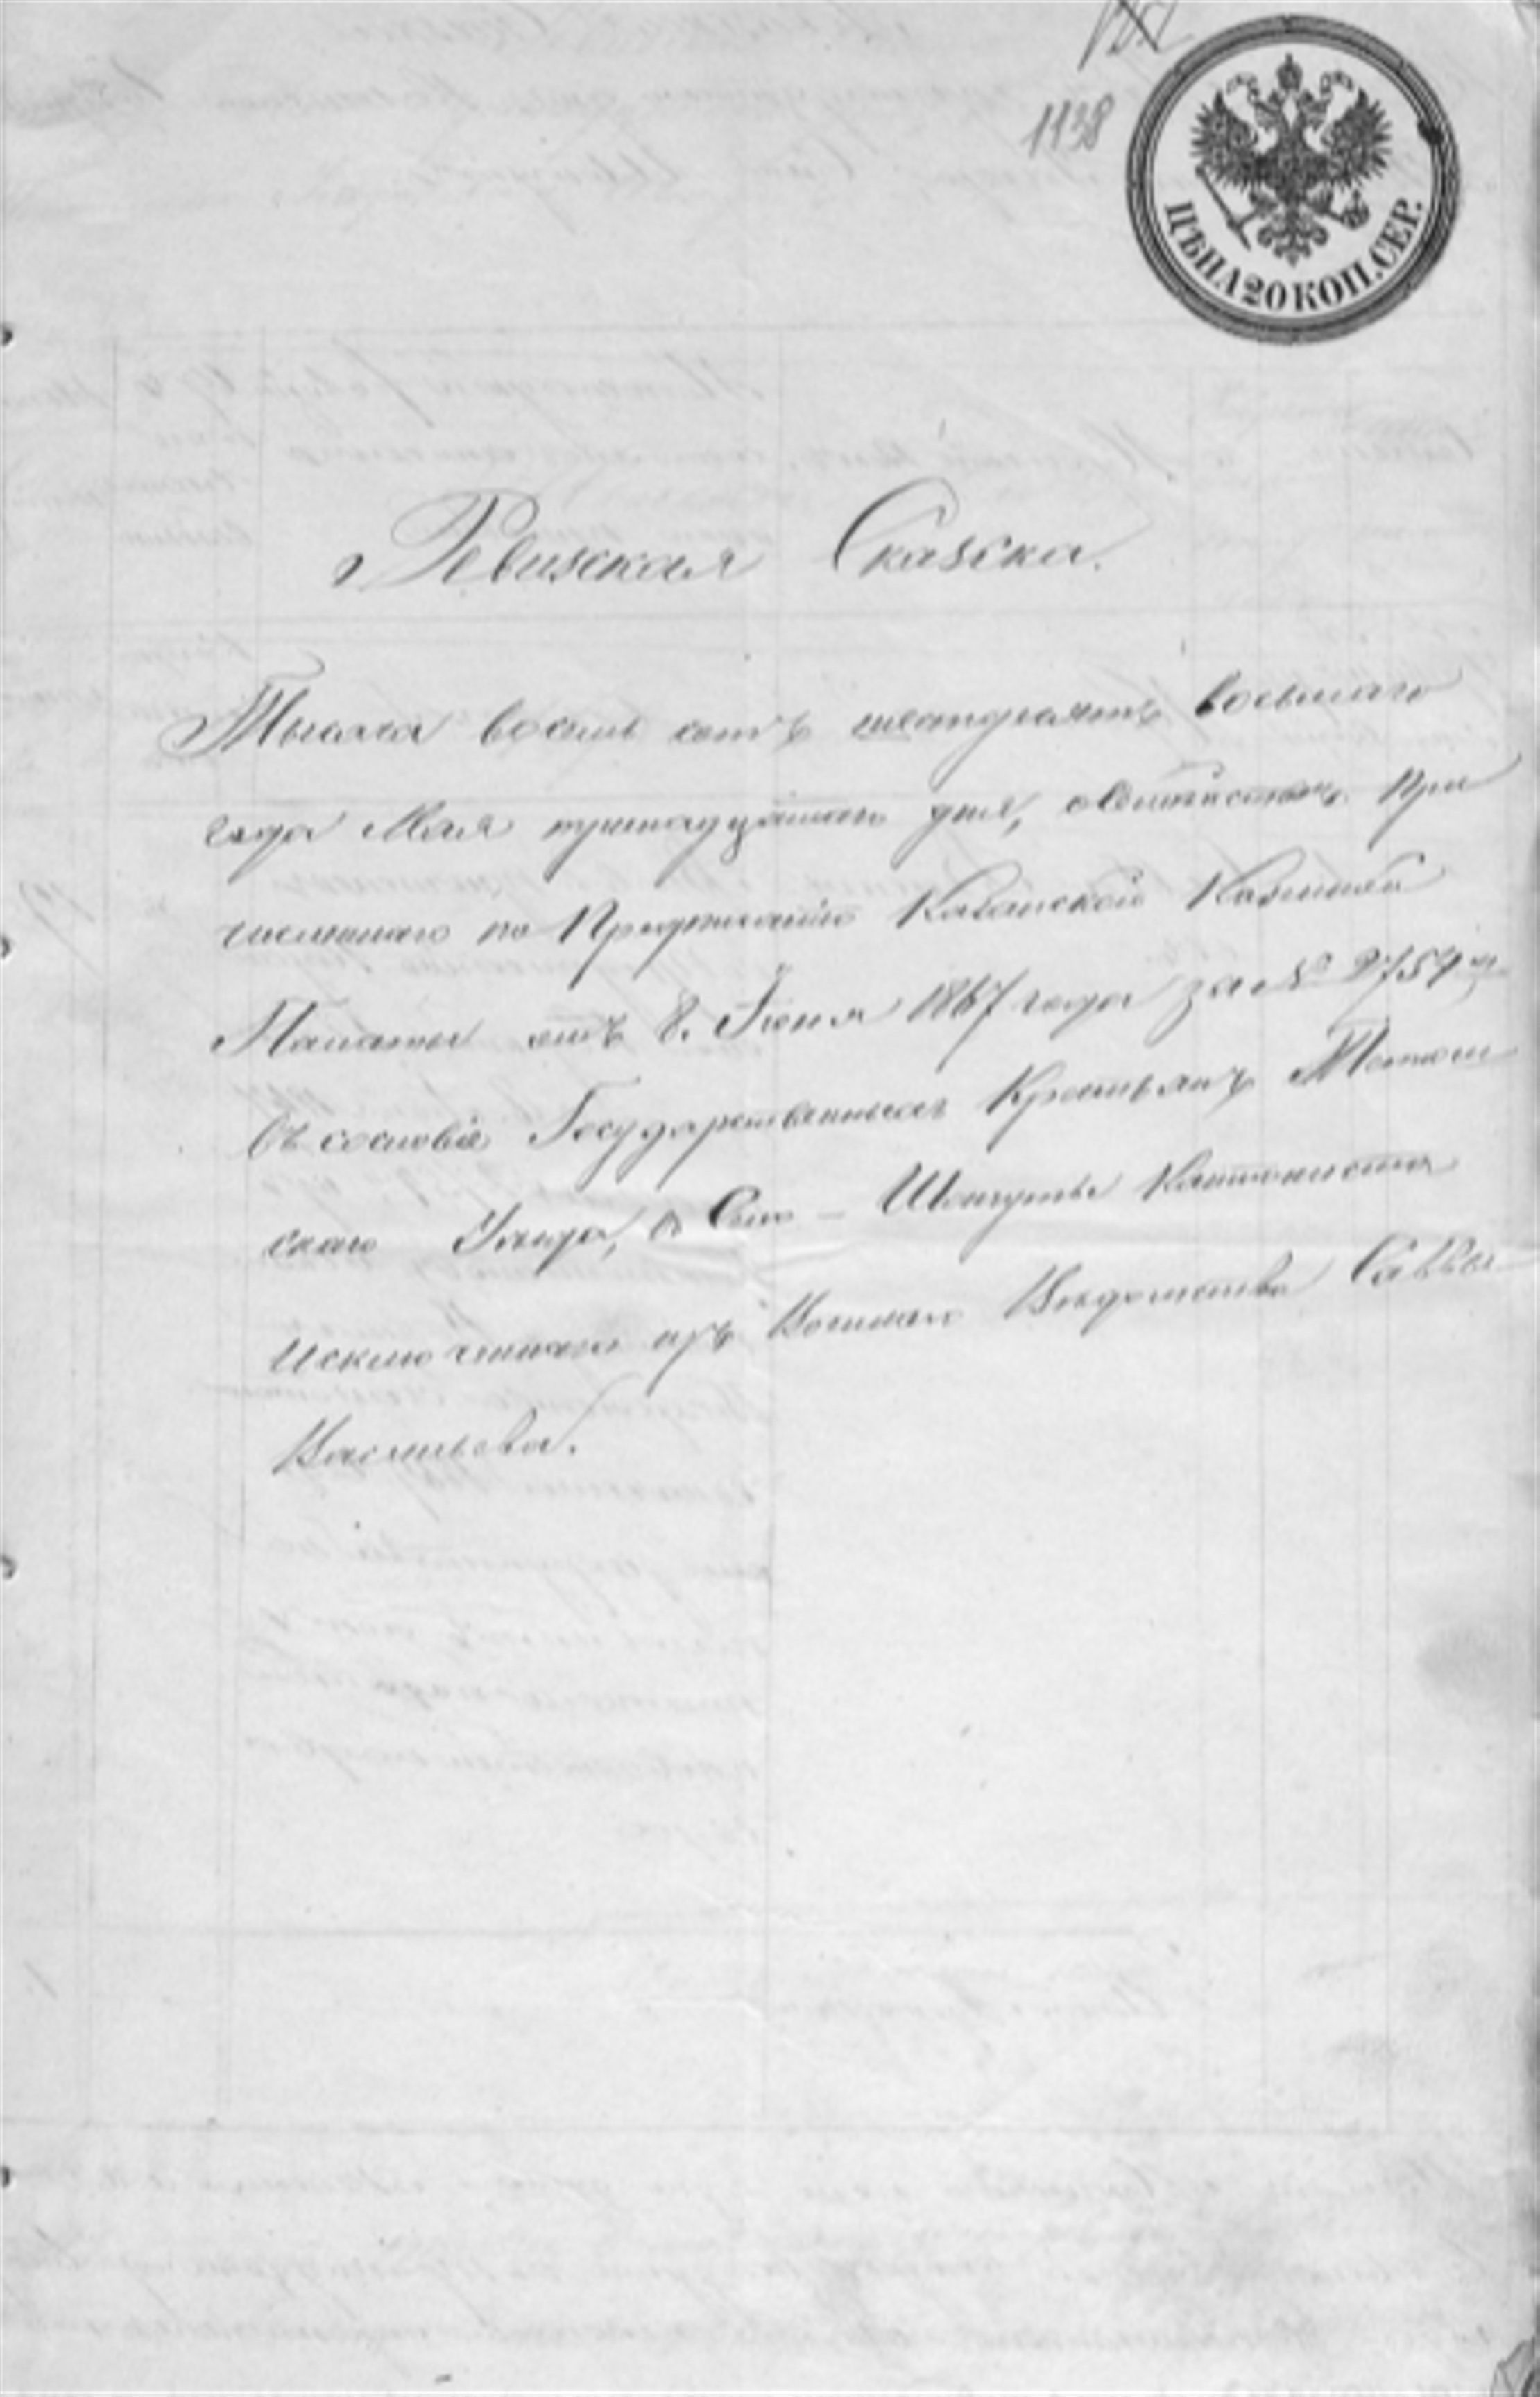 1138
ЦѢНА 20 КОП. СЕР.
Ревизская Сказка.
Тысяча восемь сотъ шестьдесятъ восьмаго
года Мая тринадцатаго дня, о При
численнаго по Предписанію Казанской Казенной
Палаты отъ 8. Іюня 1867 года за №
въ сословіе Государственныхъ Крестьянъ Тетюш
скаго Уѣзда, Кантониста
исключеннаго изъ Военнаго Вѣдомства Саввы
Васильева.